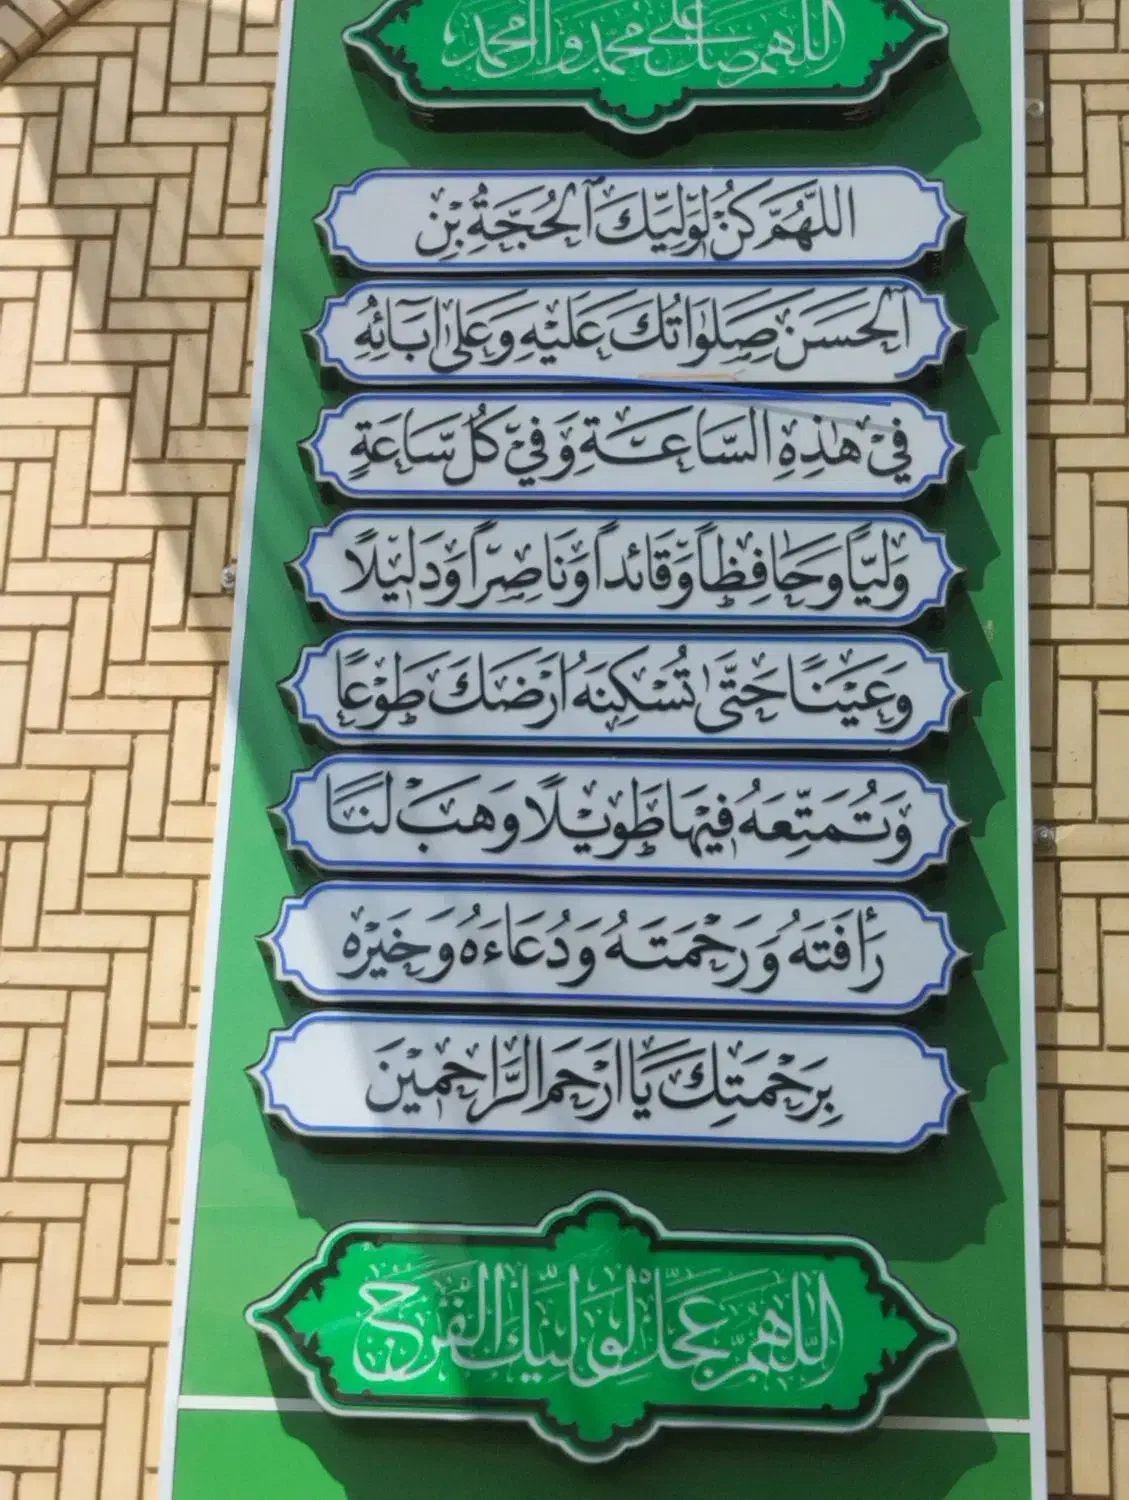 اللهم صل علی محمد و آل محمد
اللَّهُمَّ كُنْ لِوَلِيِّكَ ٱلْحُجَّةِ بْنِ
ٱلْحَسَنِ صَلَوَاتُكَ عَلَيْهِ وَعَلَىٰ آبَائِهِ
فِي هٰذِهِ السَّاعَةِ وَفِي كُلِّ سَاعَةٍ
وَلِيّاً وَحَافِظاً وَقَائِداً وَنَاصِراً وَدَلِيلًا
وَعَيْنًا حَتَّىٰ تُسْكِنَهُ ارْضَكَ طَوْعًا
وَتُمَتِّعَهُ فِيهَا طَوِيلًا وَهَبْ لَنَا
رَأْفَتَهُ وَرَحْمَتَهُ وَدُعَاءَهُ وَخَيْرَه
بِرَحْمَتِكَ يَا ارْحَمَ الرَّاحِمِينَ
اللَّهُمَّ عَجِّلْ لِوَلِيِّكَ الْفَرَجَ